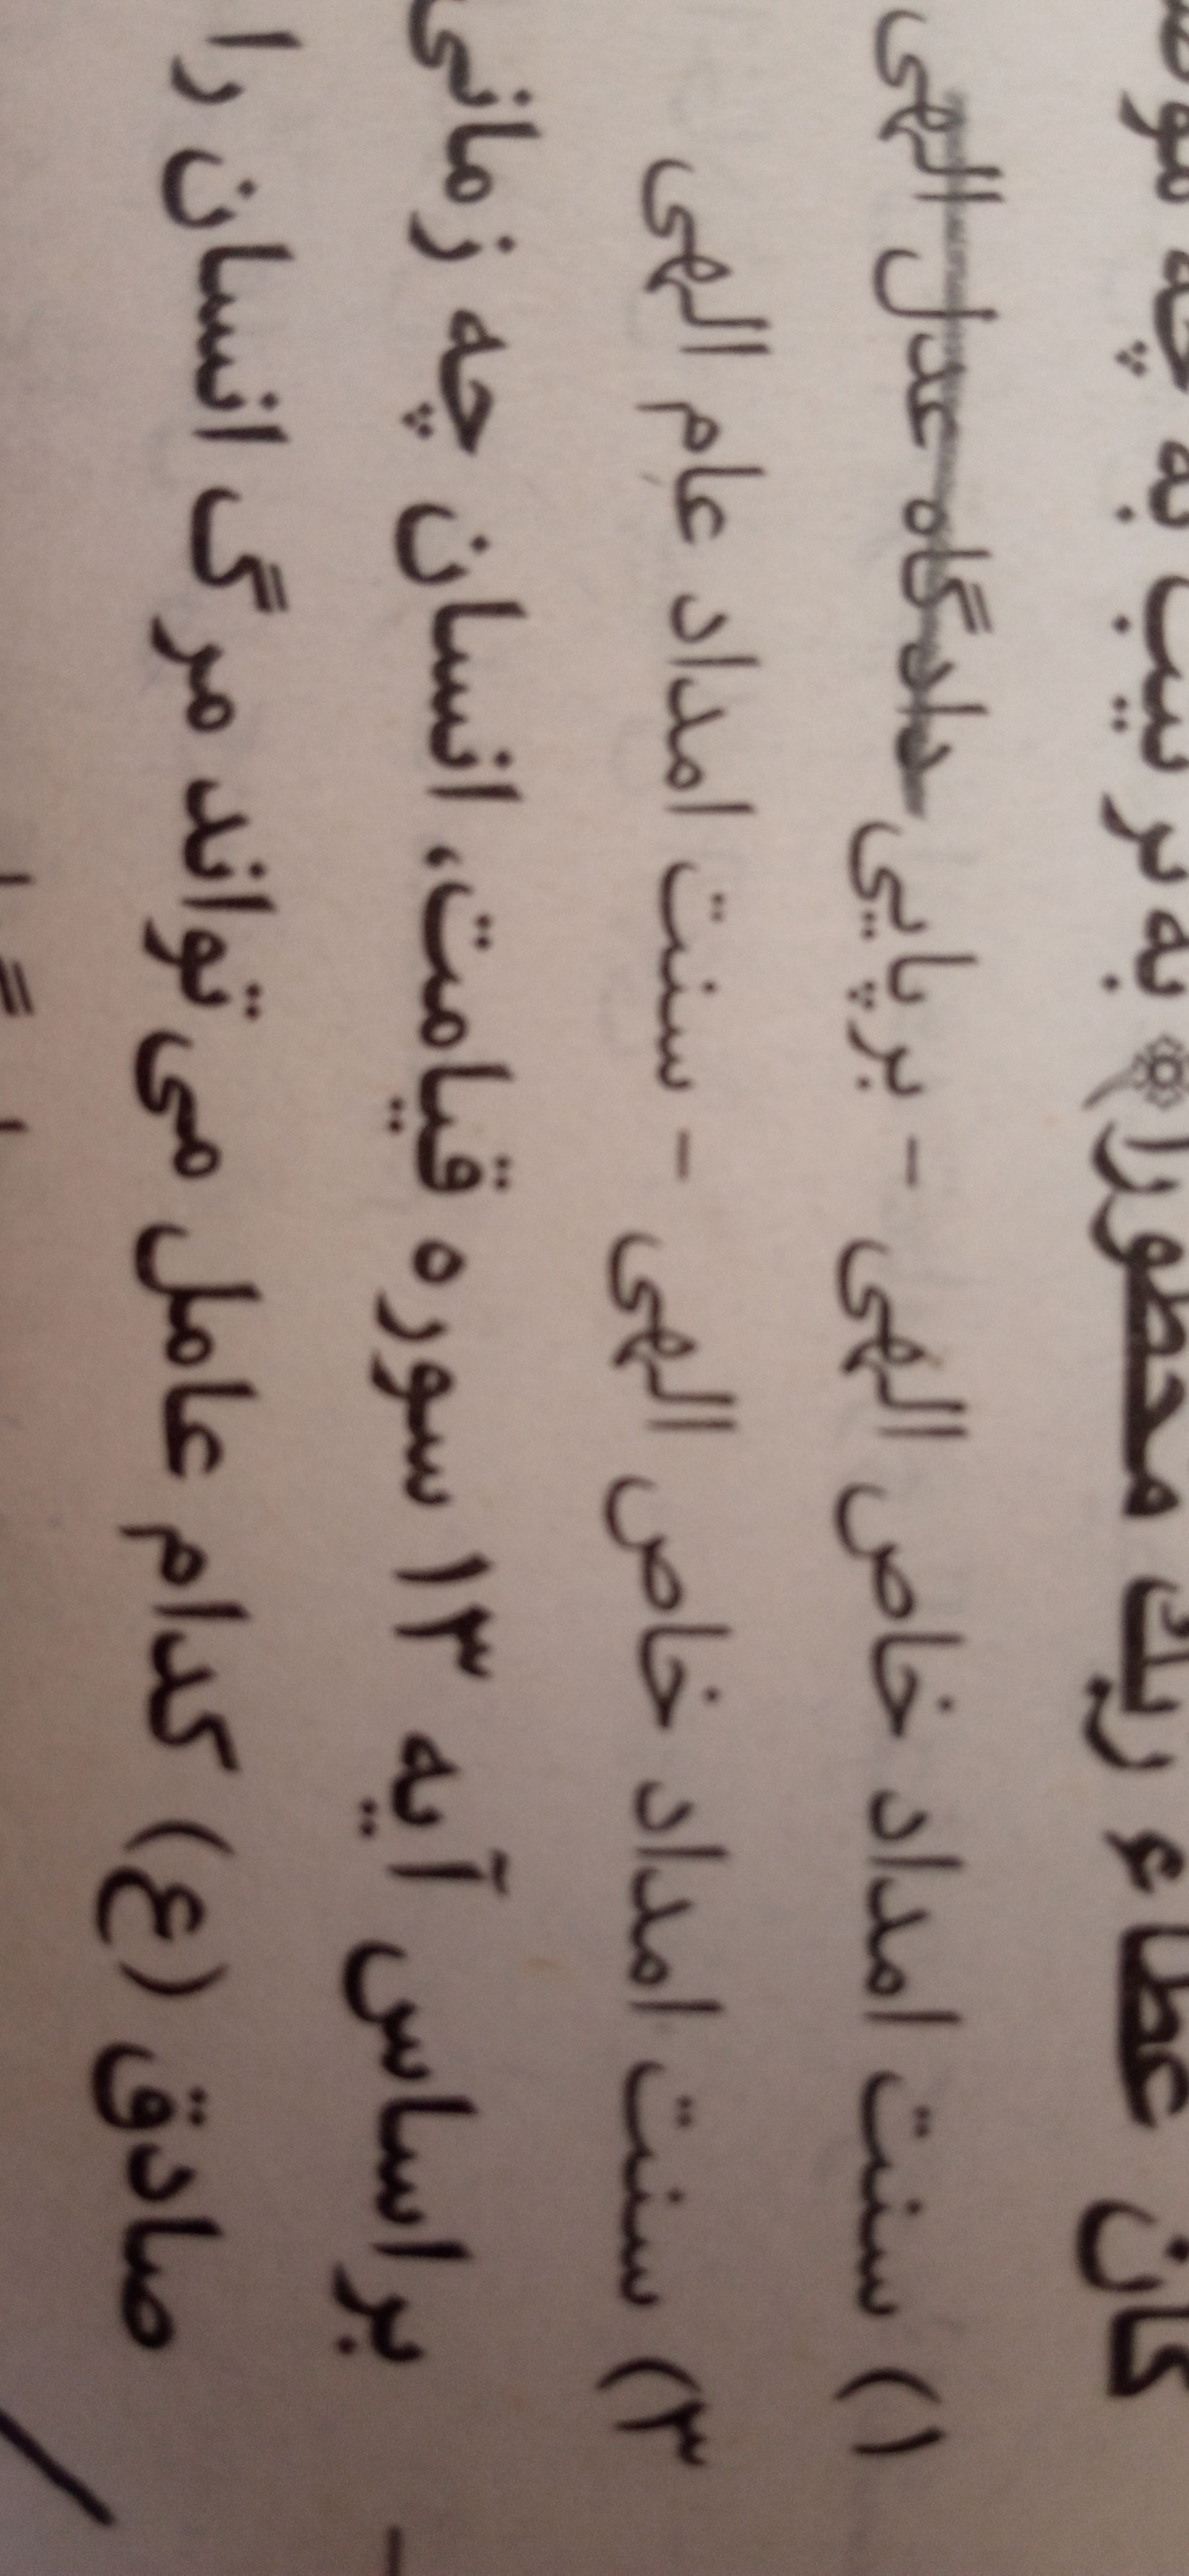 كان عطاء ربك محظورا﴾ به‌ترتیب به چه
۱) سنت امداد خاص الهی - برپایی دادگاه عدل الهی
۳) سنت امداد خاص الهی - سنت امداد عام الهی
براساس آیه ۱۳ سوره قیامت، انسان چه زمانی
صادق (ع) کدام عامل می‌تواند مرگ انسان را